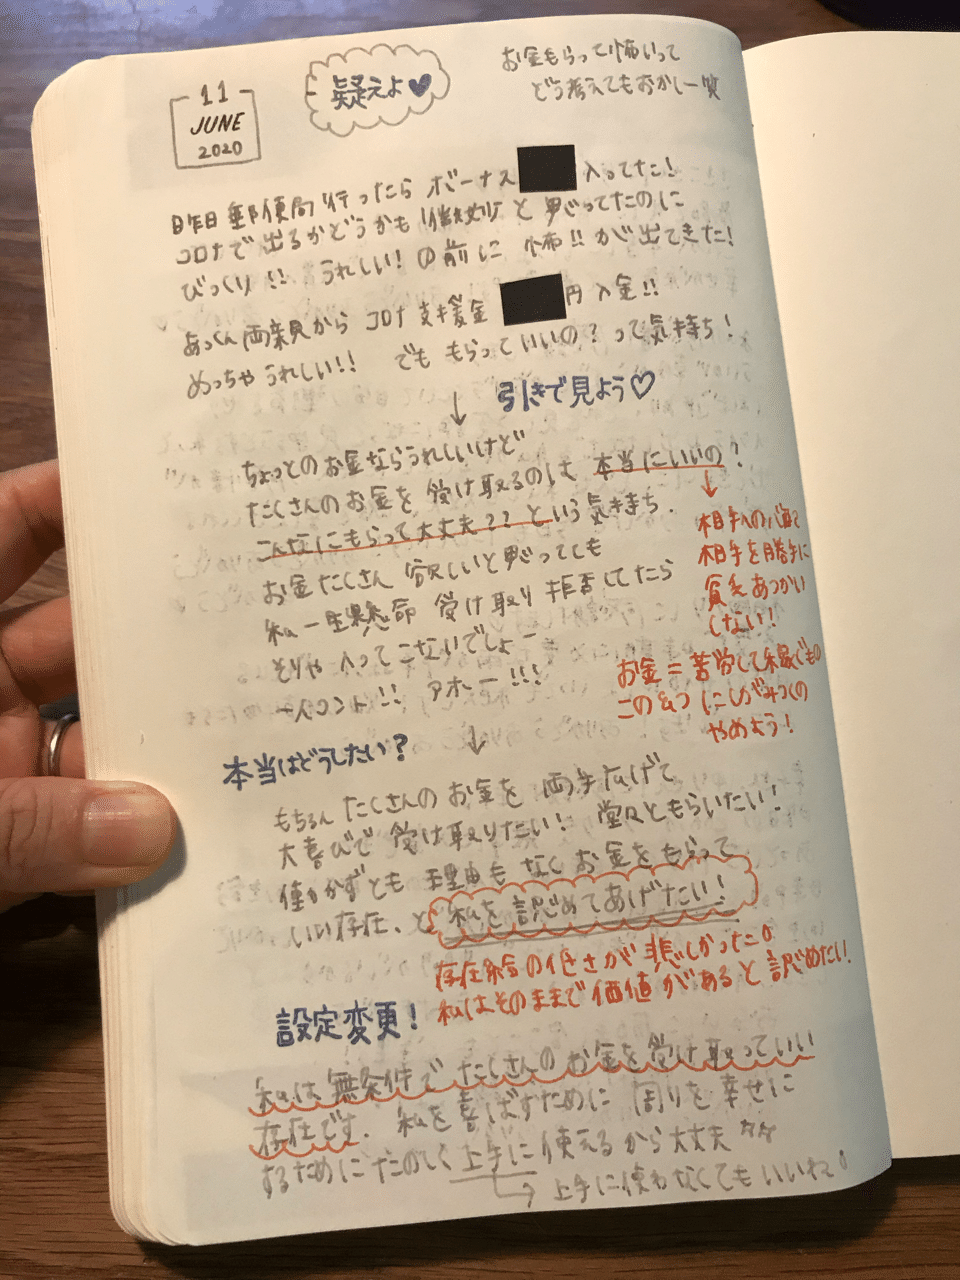 11
JUNE
2020
疑えよ♥
お金もらって怖いって
どう考えてもおかしー笑
昨日郵便局行ったらボーナス 入ってた!
コロナで出るかどうかも微妙と思ってたのに
びっくり!! うれしい!の前に 怖!!が出てきた!
あっくん両親からコロナ支援金 円入金!!
めっちゃうれしい!! でももらっていいの?って気持ち!
↓ 引きで見よう♡
ちょっとのお金ならうれしいけど
たくさんのお金を受け取るのは本当にいいの?
こんなにもらって大丈夫??という気持ち.
↓
相手への心配?
相手を勝手に
貧乏あつかい
しない!
お金たくさん欲しいと思ってても
私一生懸命受け取り拒否してたら
そりゃ入ってこないでしょー
一人コント!! アホー!!!
お金=苦労して稼ぐもの
この2つにしがみつくの
やめよう!
↓
本当はどうしたい?
もちろんたくさんのお金を両手広げて
大喜びで受け取りたい!堂々ともらいたい!
働かずとも理由もなくお金をもらって
いい存在、と私を認めてあげたい!
存在給の低さが悲しかった。
私はそのままで価値があると認めたい!
設定変更!
私は無条件でたくさんのお金を受け取っていい
存在です. 私を喜ばすために周りを幸せに
するためにたのしく上手に使えるから大丈夫
→上手に使わなくてもいいね!